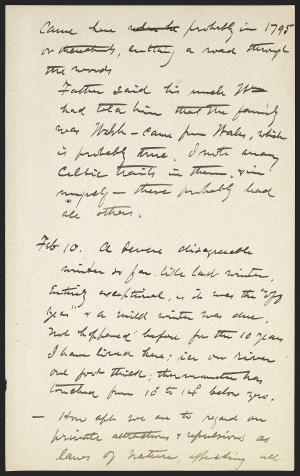 Came here probably in 1795
or cutting a road through
the woods
Father said his uncle
had told him that the family
was Welsh – came from Wales, which
is probably true. I note many
Celtic traits in them, & in
myself – these probably had
all others.
Feb 10. A severe disagreeable
winter so far, like last winter.
Entirely exceptional, as it was the "off
year", & a mild winter was due.
Not happened before for the 10 years
I have lived here; ice on river
one foot thick; thermometer has
touched from 10° to 14° below zero.
— How apt we are to regard our
private attractions & repulsions as
laws of nature, affecting all